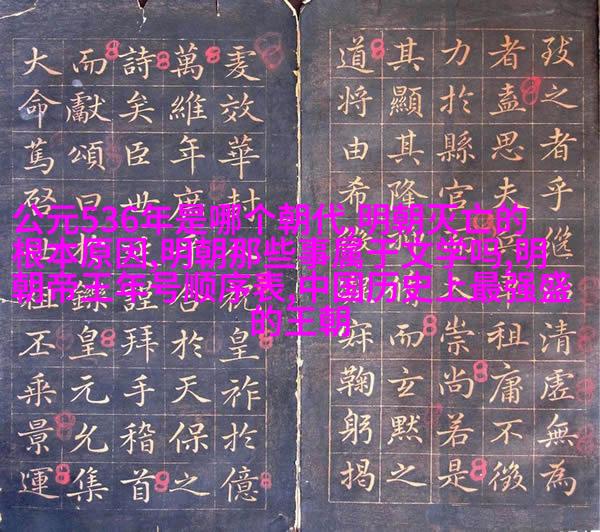 公元536年是哪个朝代,明朝灭亡的
根本原因,明朝那些事属于文学吗,明
朝帝王年号顺序表,中国历史上最强盛
的王朝
之者乎清虛無為
者盍思夫祖庸不徵
力於縣官崇尚若是
其顯其隆而玄默之
道將由希鞠躬揭
效華封祝皇祚於億
萬維年於天保之
詩矣臣世謹拜手稽首
而獻頌曰鑠皇元允集
大命篤啓丕乘景運